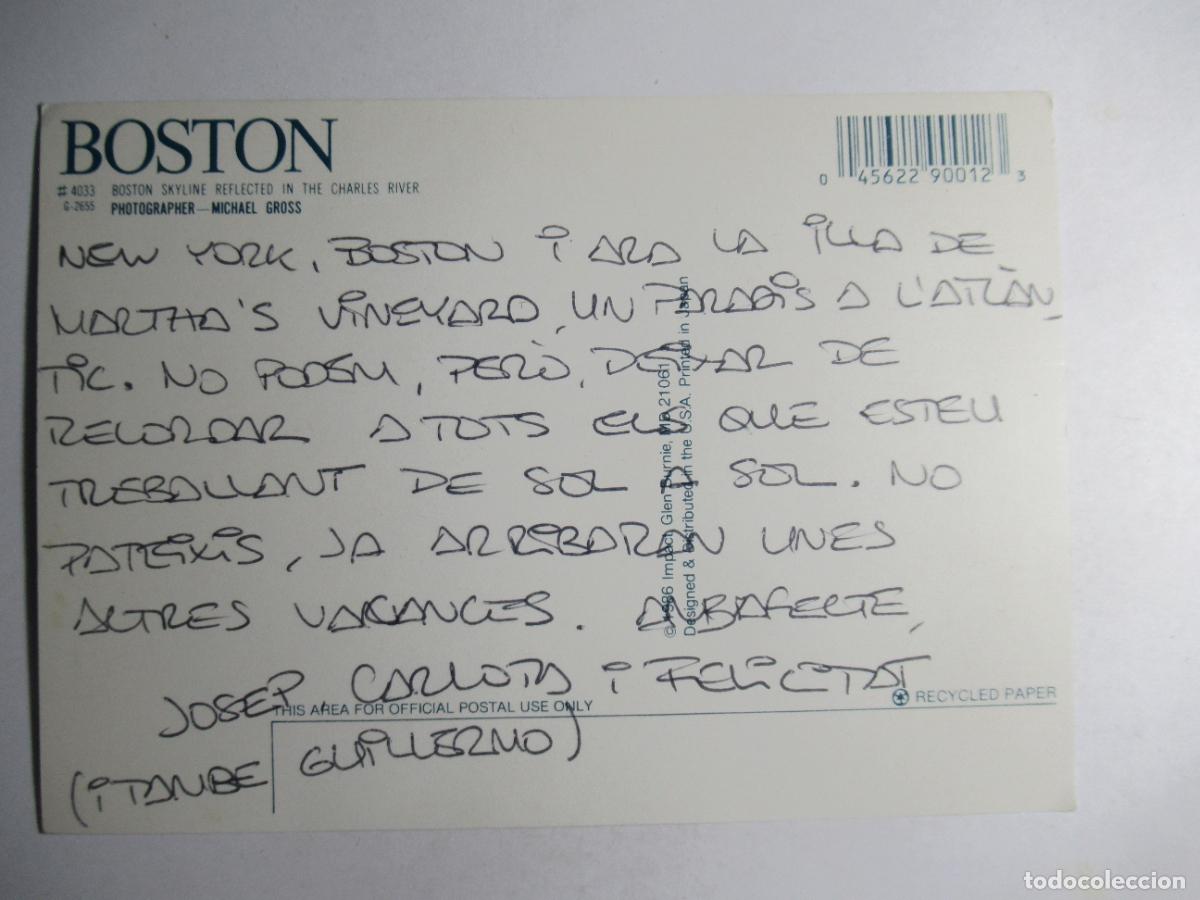 BOSTON
# 4033 BOSTON SKYLINE REFLECTED IN THE CHARLES RIVER
G-2655 PHOTOGRAPHER—MICHAEL GROSS
0 45622 90012 3
NEW YORK, BOSTON I ARA LA ILLA DE
MARTHA'S VINEYARD, UN PARADIS A L'ATLÀN
TIC. NO PODEM, PERÒ, DEIXAR DE
RECORDAR A TOTS ELS QUE ESTEU
TREBALLANT DE SOL A SOL. NO
PATEIXIS, JA ARRIBARAN UNES
ALTRES VACANCES. AMB AFECTE,
JOSEP, CARLOTA I FELICITAT
(I TAMBE GUILLERMO)
© 1986 Impact, Glen Burnie, MD 21061
Designed & Distributed in the U.S.A. Printed in Japan
THIS AREA FOR OFFICIAL POSTAL USE ONLY
RECYCLED PAPER
todocoleccion